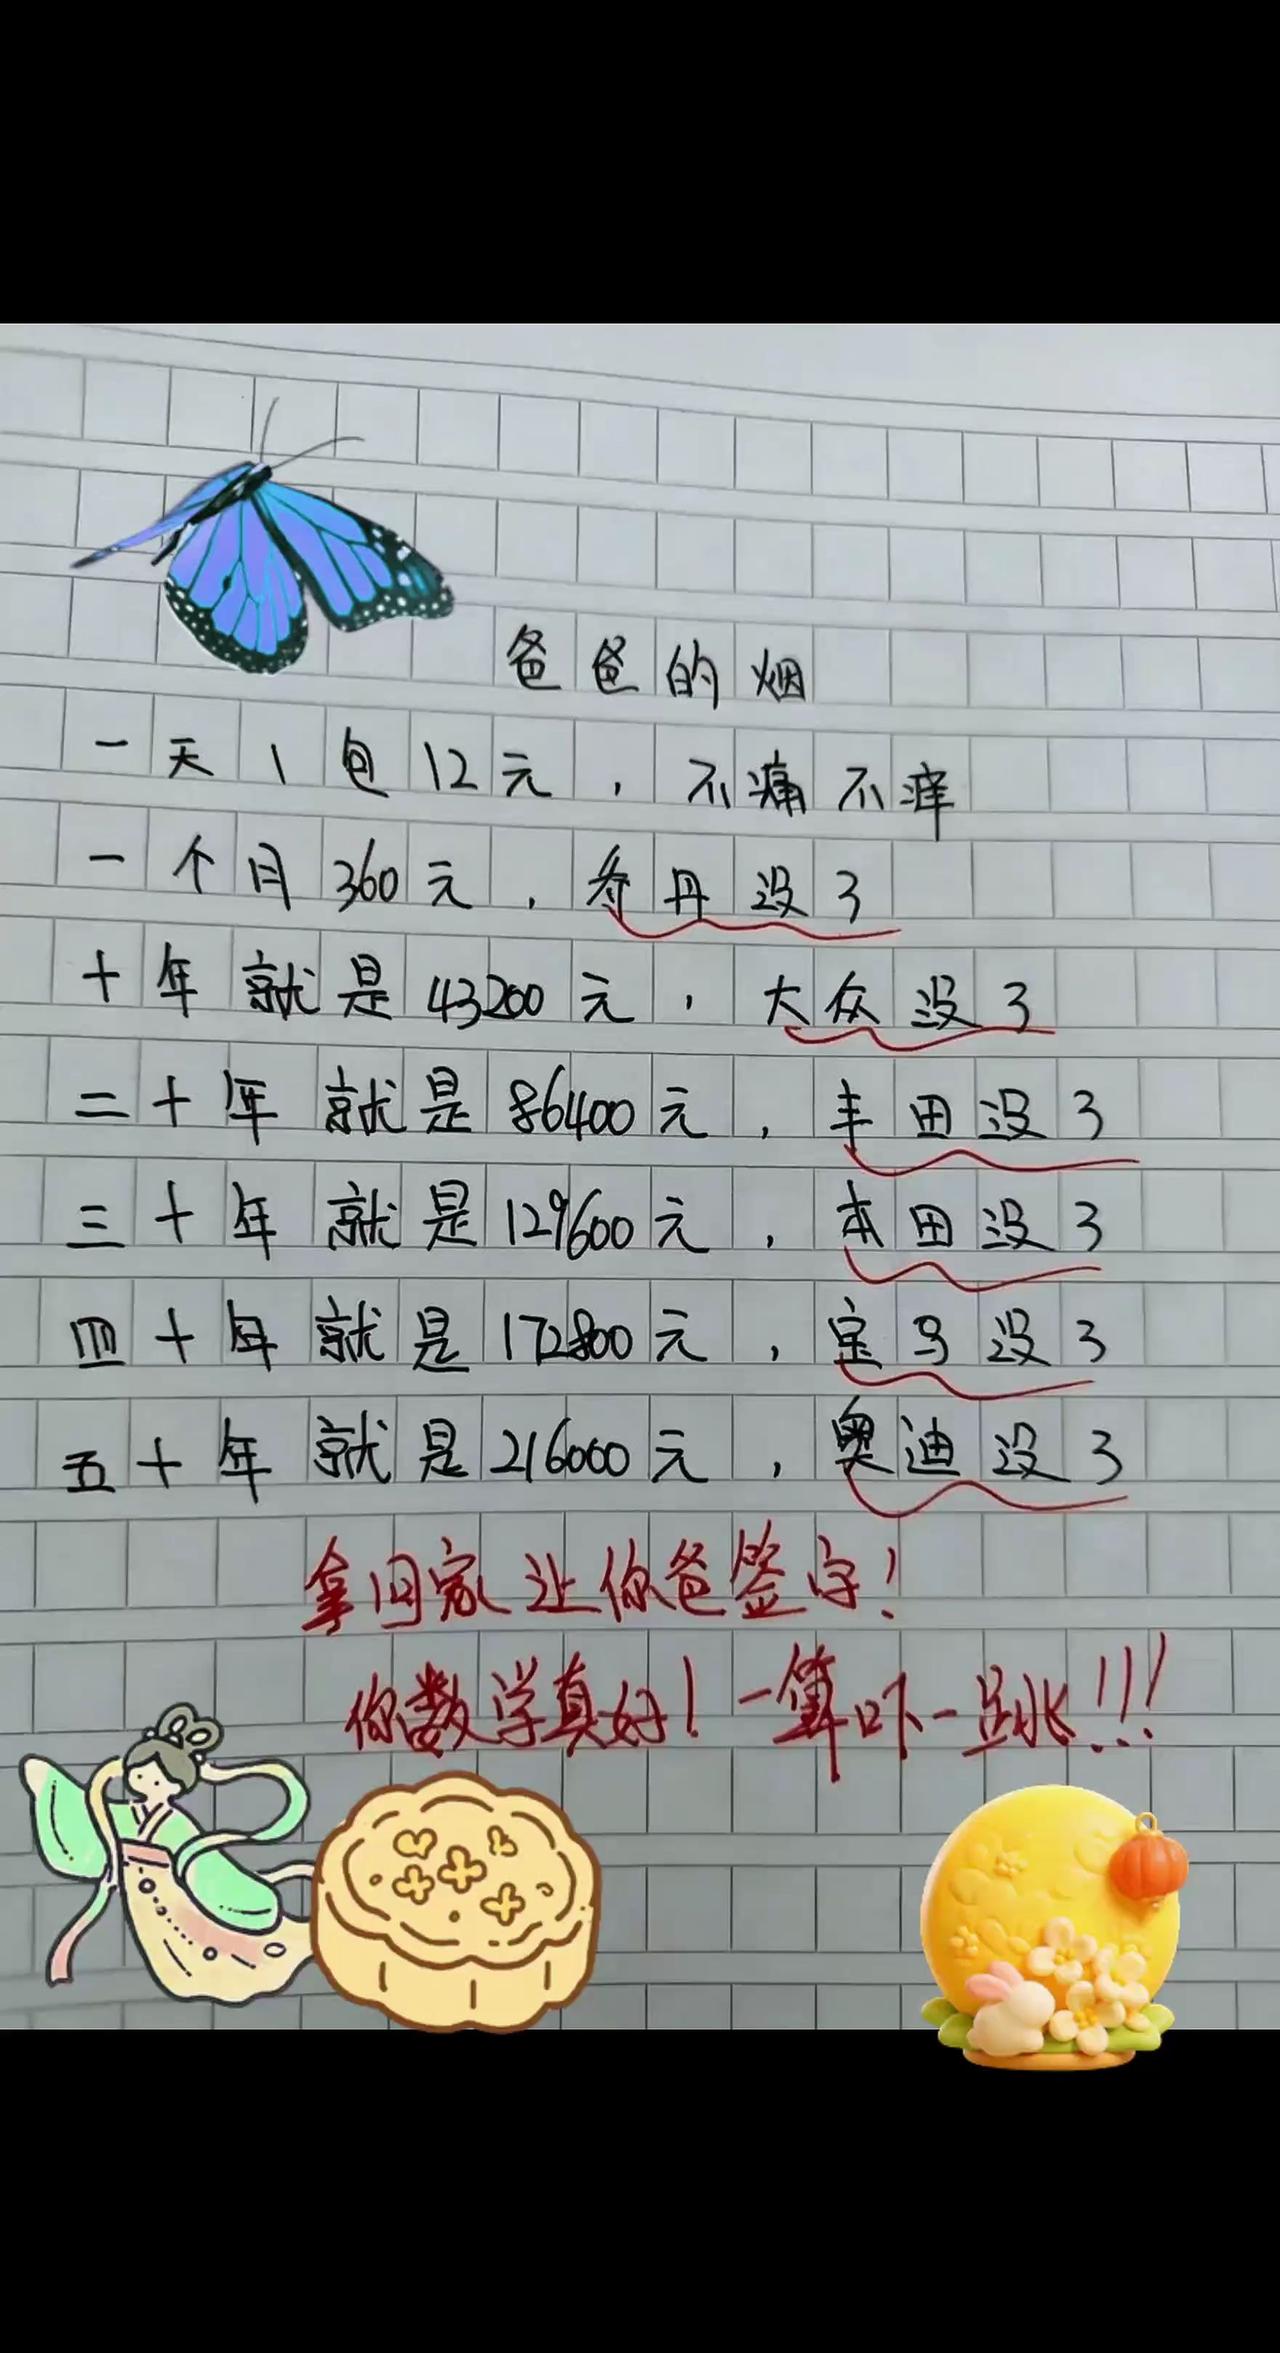 爸爸的烟
一天1包12元，不痛不痒
一个月360元，寿丹没了
十年就是43200元，大众没了
二十年就是86400元，丰田没了
三十年就是129600元，本田没了
四十年就是172800元，宝马没了
五十年就是216000元，奥迪没了
拿回家让你爸签字！
你数学真好！一算吓一跳！！！